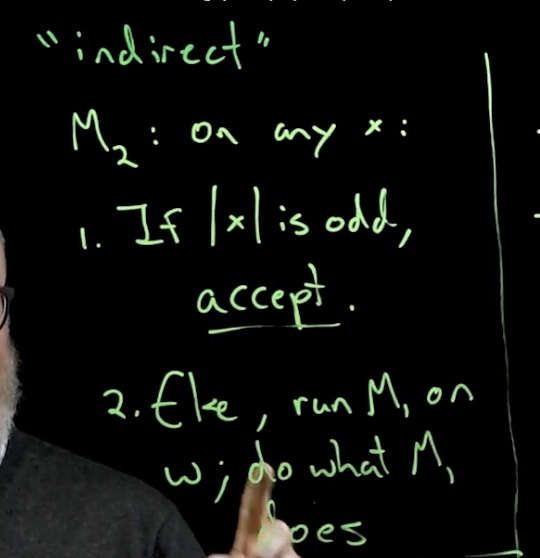 "indirect"
M₂: on any x:
1. If |x| is odd,
accept.
2. Else, run M₁ on
w; do what M₁
does